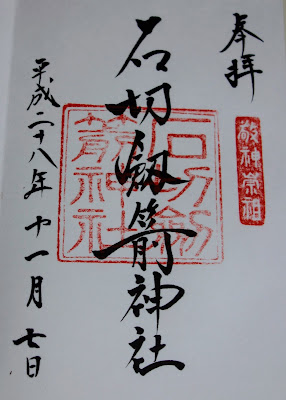 奉拝
敬神崇祖
石切劔箭神社
石切劔箭神社
平成二十八年十一月七日